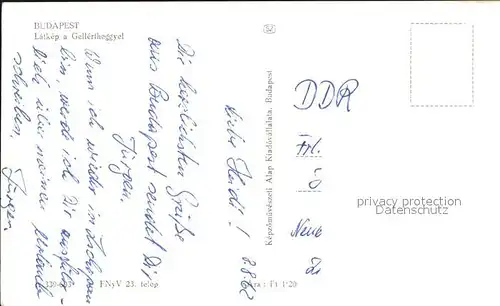 BUDAPEST
Látkép a Gellértheggyel
8.8.62
Liebe Heidi!
Die herzlichsten Grüße
aus Budapest sendet Dir
Jürgen.
Wenn ich wieder in Zschopau
bin, werde ich Dir ausführ-
lich über meinen Urlaub
schreiben.
Jürgen
Képzőművészeti Alap Kiadóvállalata, Budapest
FNyV 23. telep
Ára: Ft 1·20
DDR
Frl.
privacy protection
Datenschutz